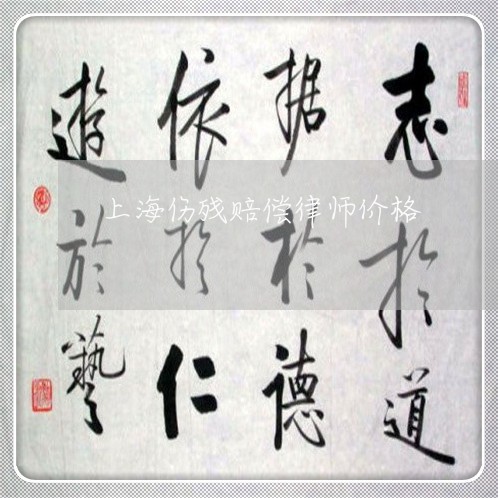 志於道
据於德
依於仁
遊於藝
上海伤残赔偿律师价格